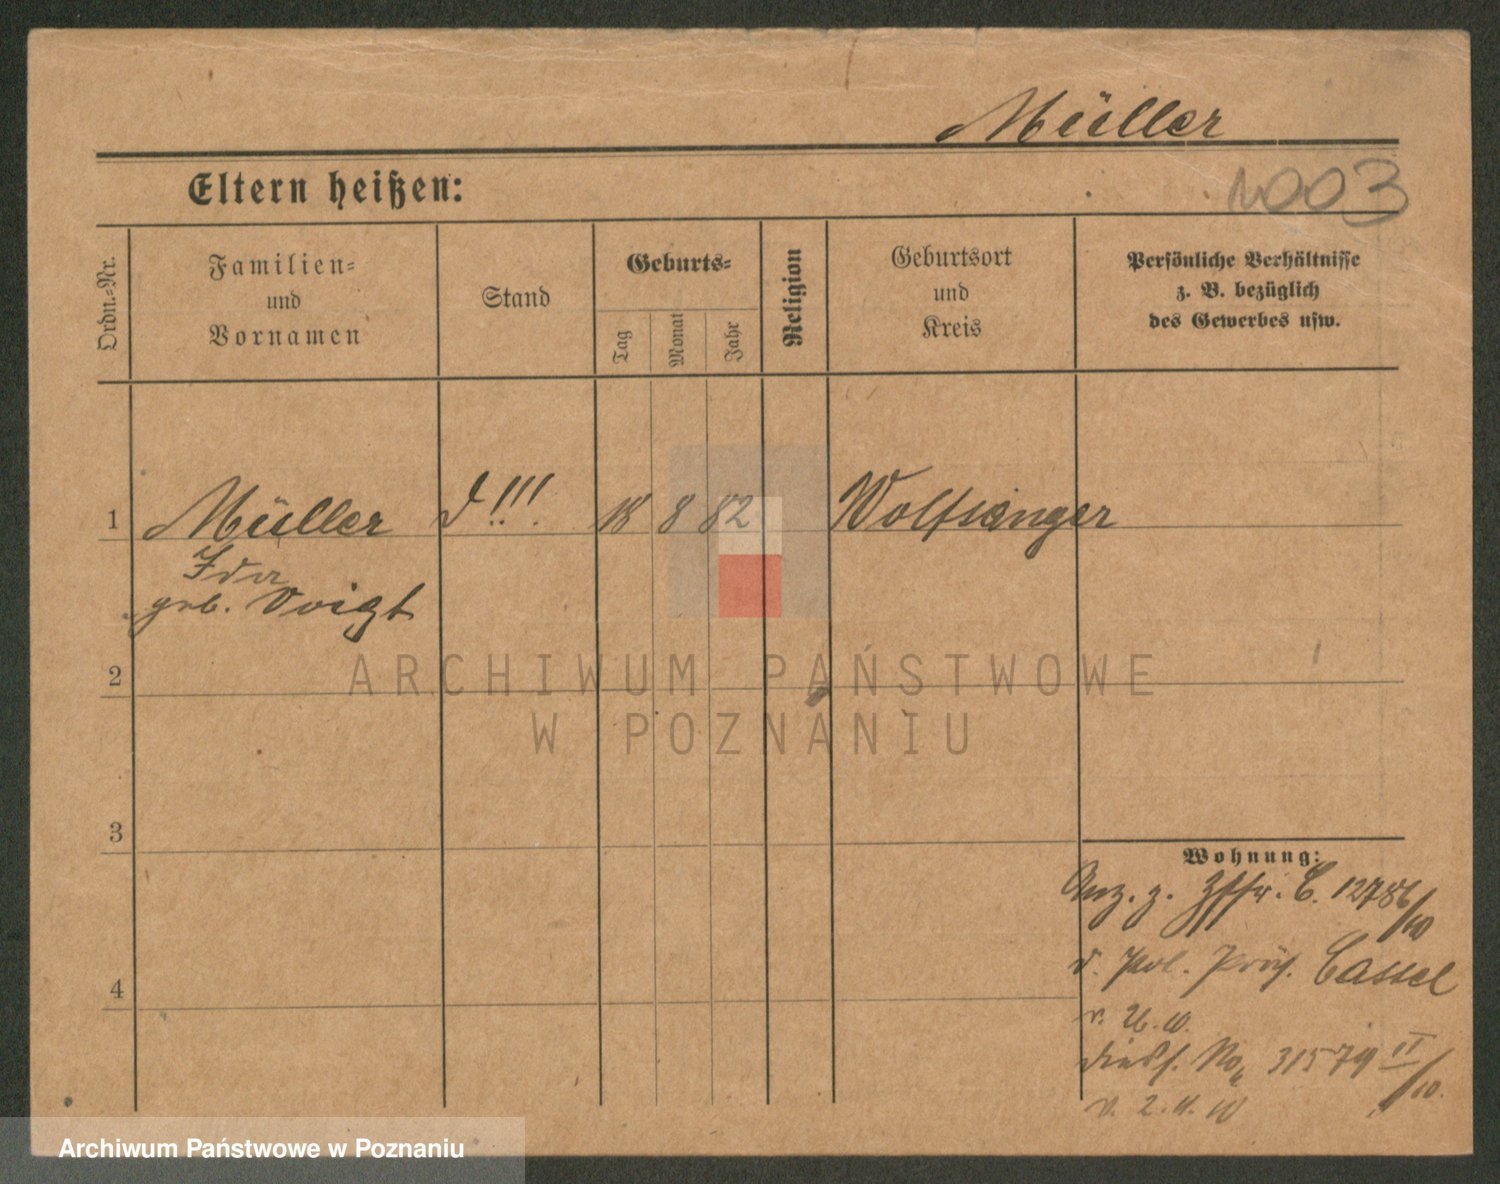 Müller
Eltern heißen:
003
Ordn.-Nr.
Familien-
und
Vornamen
Stand
Geburts-
Tag
Monat
Jahr
Religion
Geburtsort
und
Kreis
Persönliche Verhältnisse
z. B. bezüglich
des Gewerbes usw.
1 Müller d!!! 18 8 82 Wolfsanger
Ida
geb. Voigt
2
3
4
Wohnung:
Anz. z. C. 12786/10
d. Pol. Präs. Cassel
v. 26.10.
diess. No 31579 II/10.
v. 2.11.10
ARCHIWUM PAŃSTWOWE
W POZNANIU
Archiwum Państwowe w Poznaniu